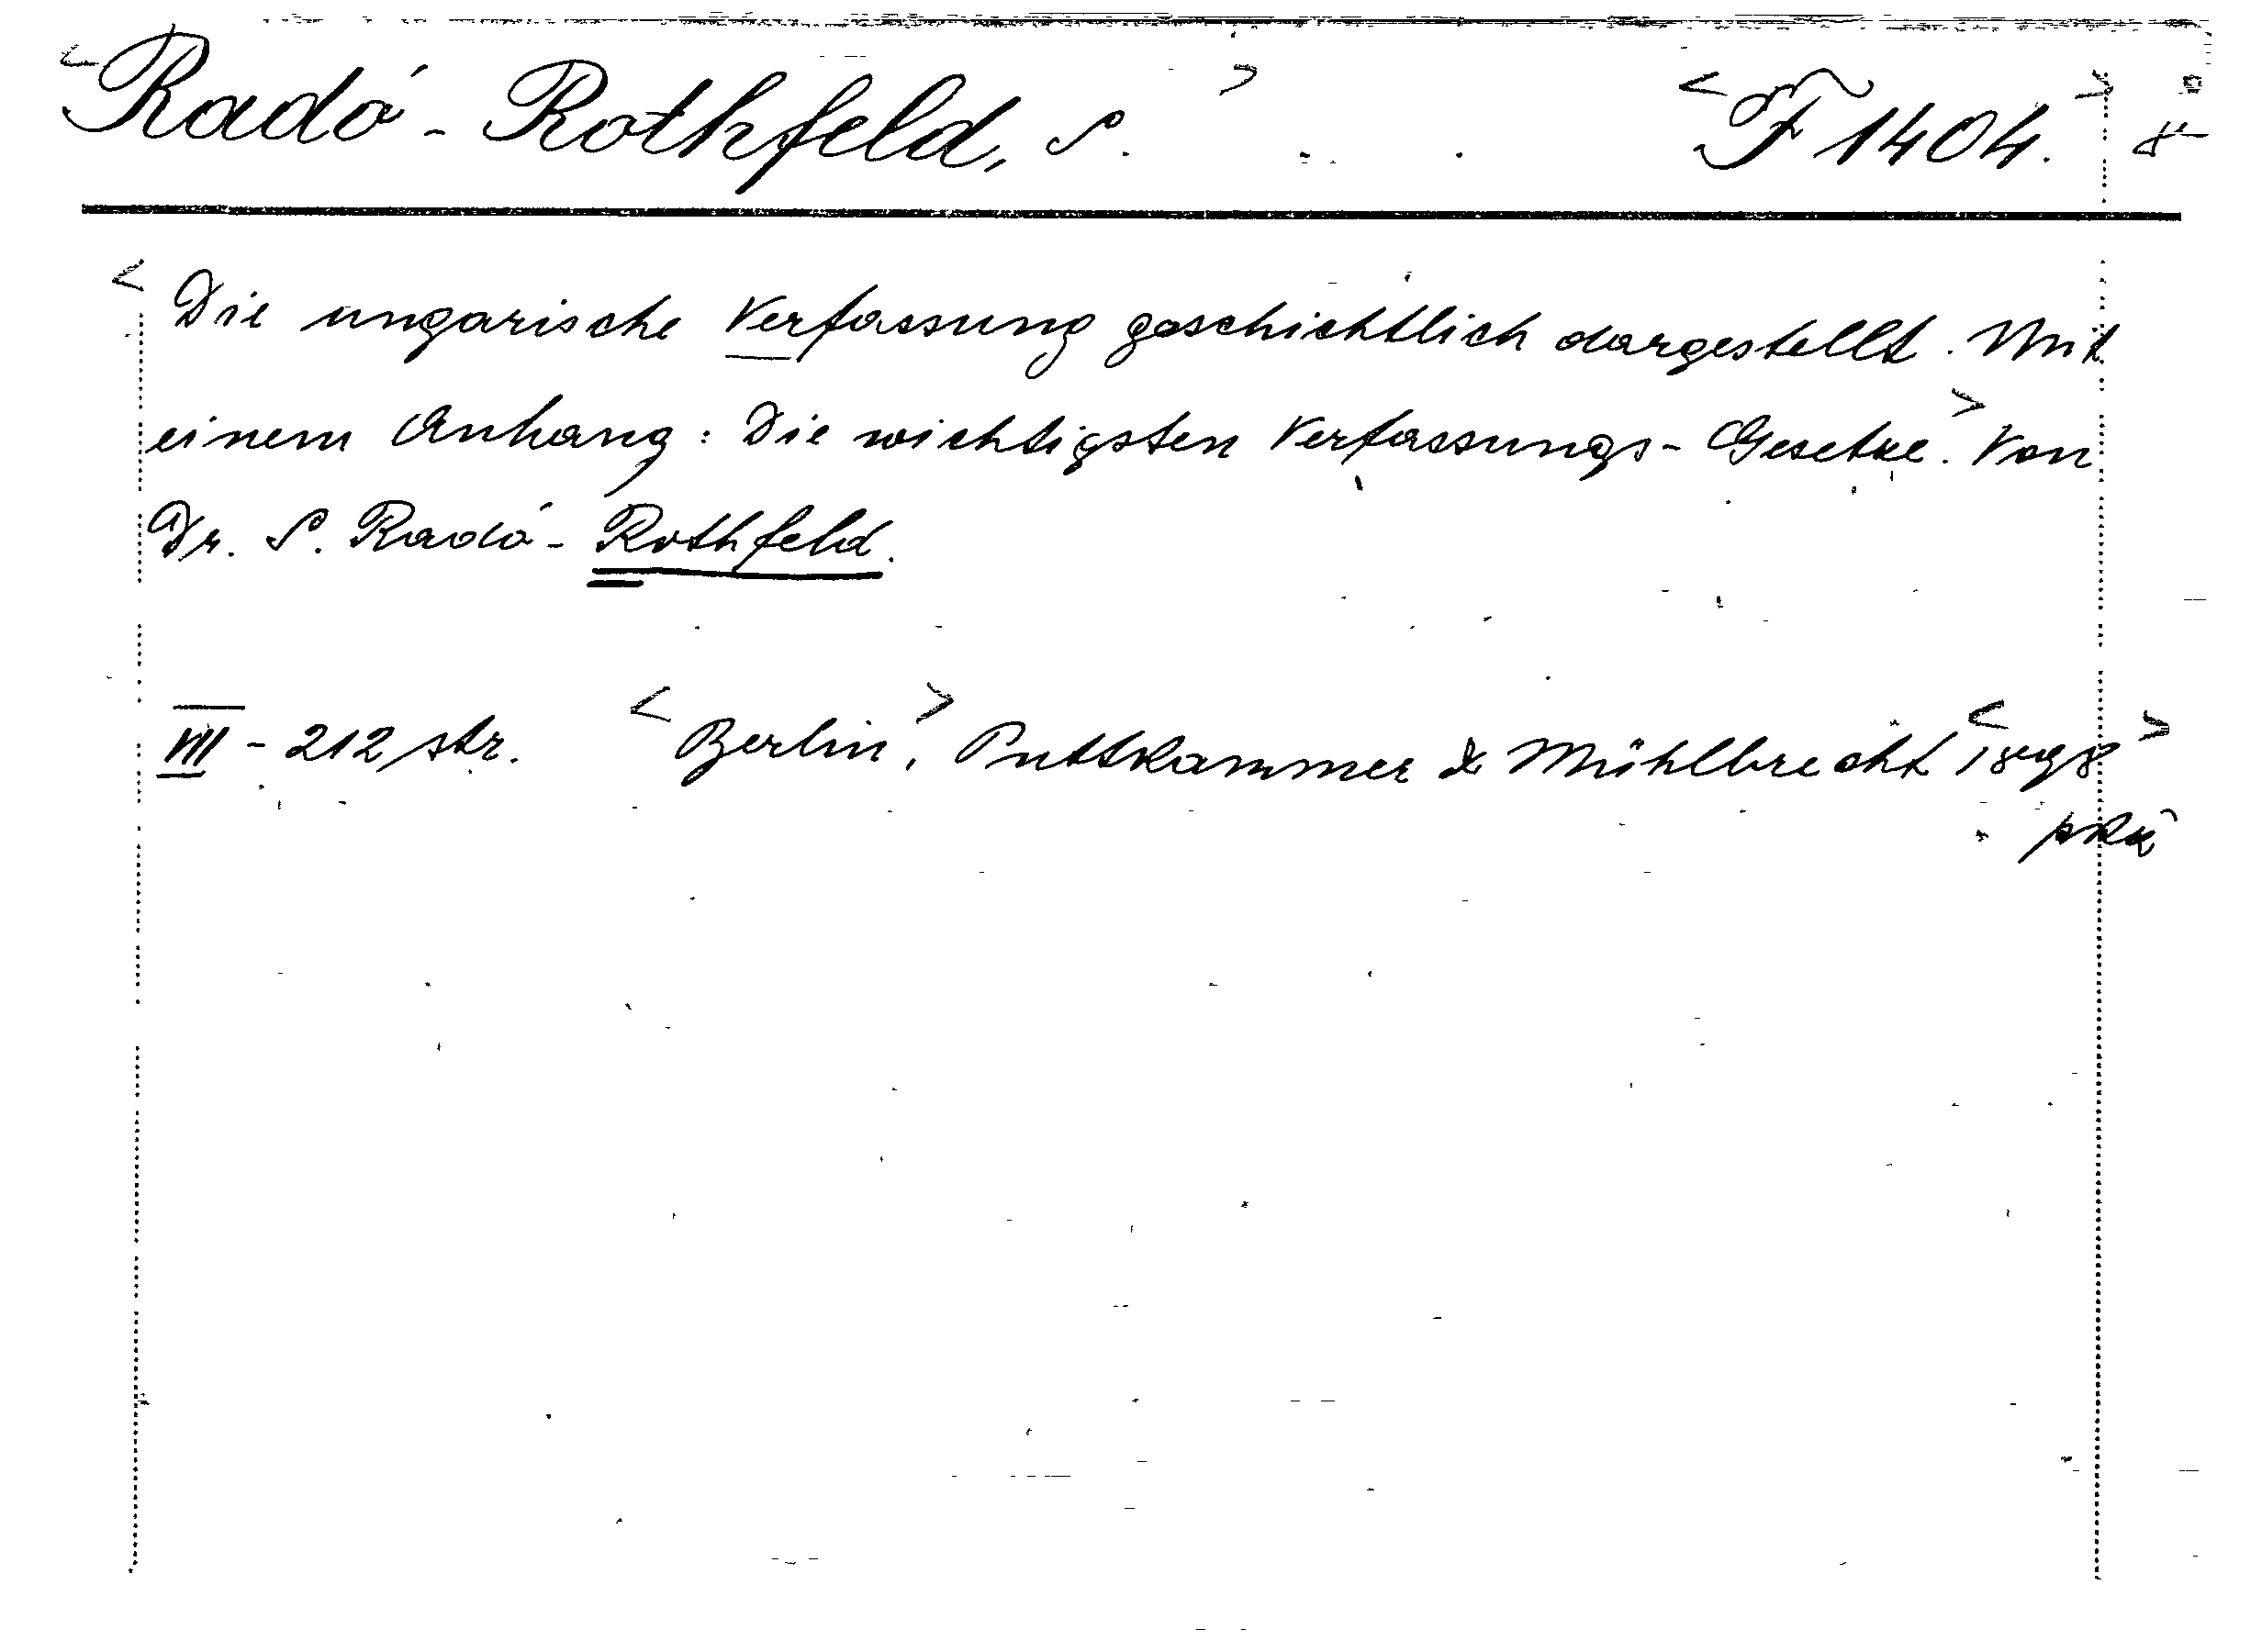 <Radó-Rothfeld, S.> <F 1404.>
<Die ungarische Verfassung geschichtlich dargestellt. Mit
einem Anhang: Die wichtigsten Verfassungs-Gesetze>. Von
Dr. S. Radó-Rothfeld.
VIII - 212 str. <Berlin>, Puttkammer & Mühlbrecht <1898>